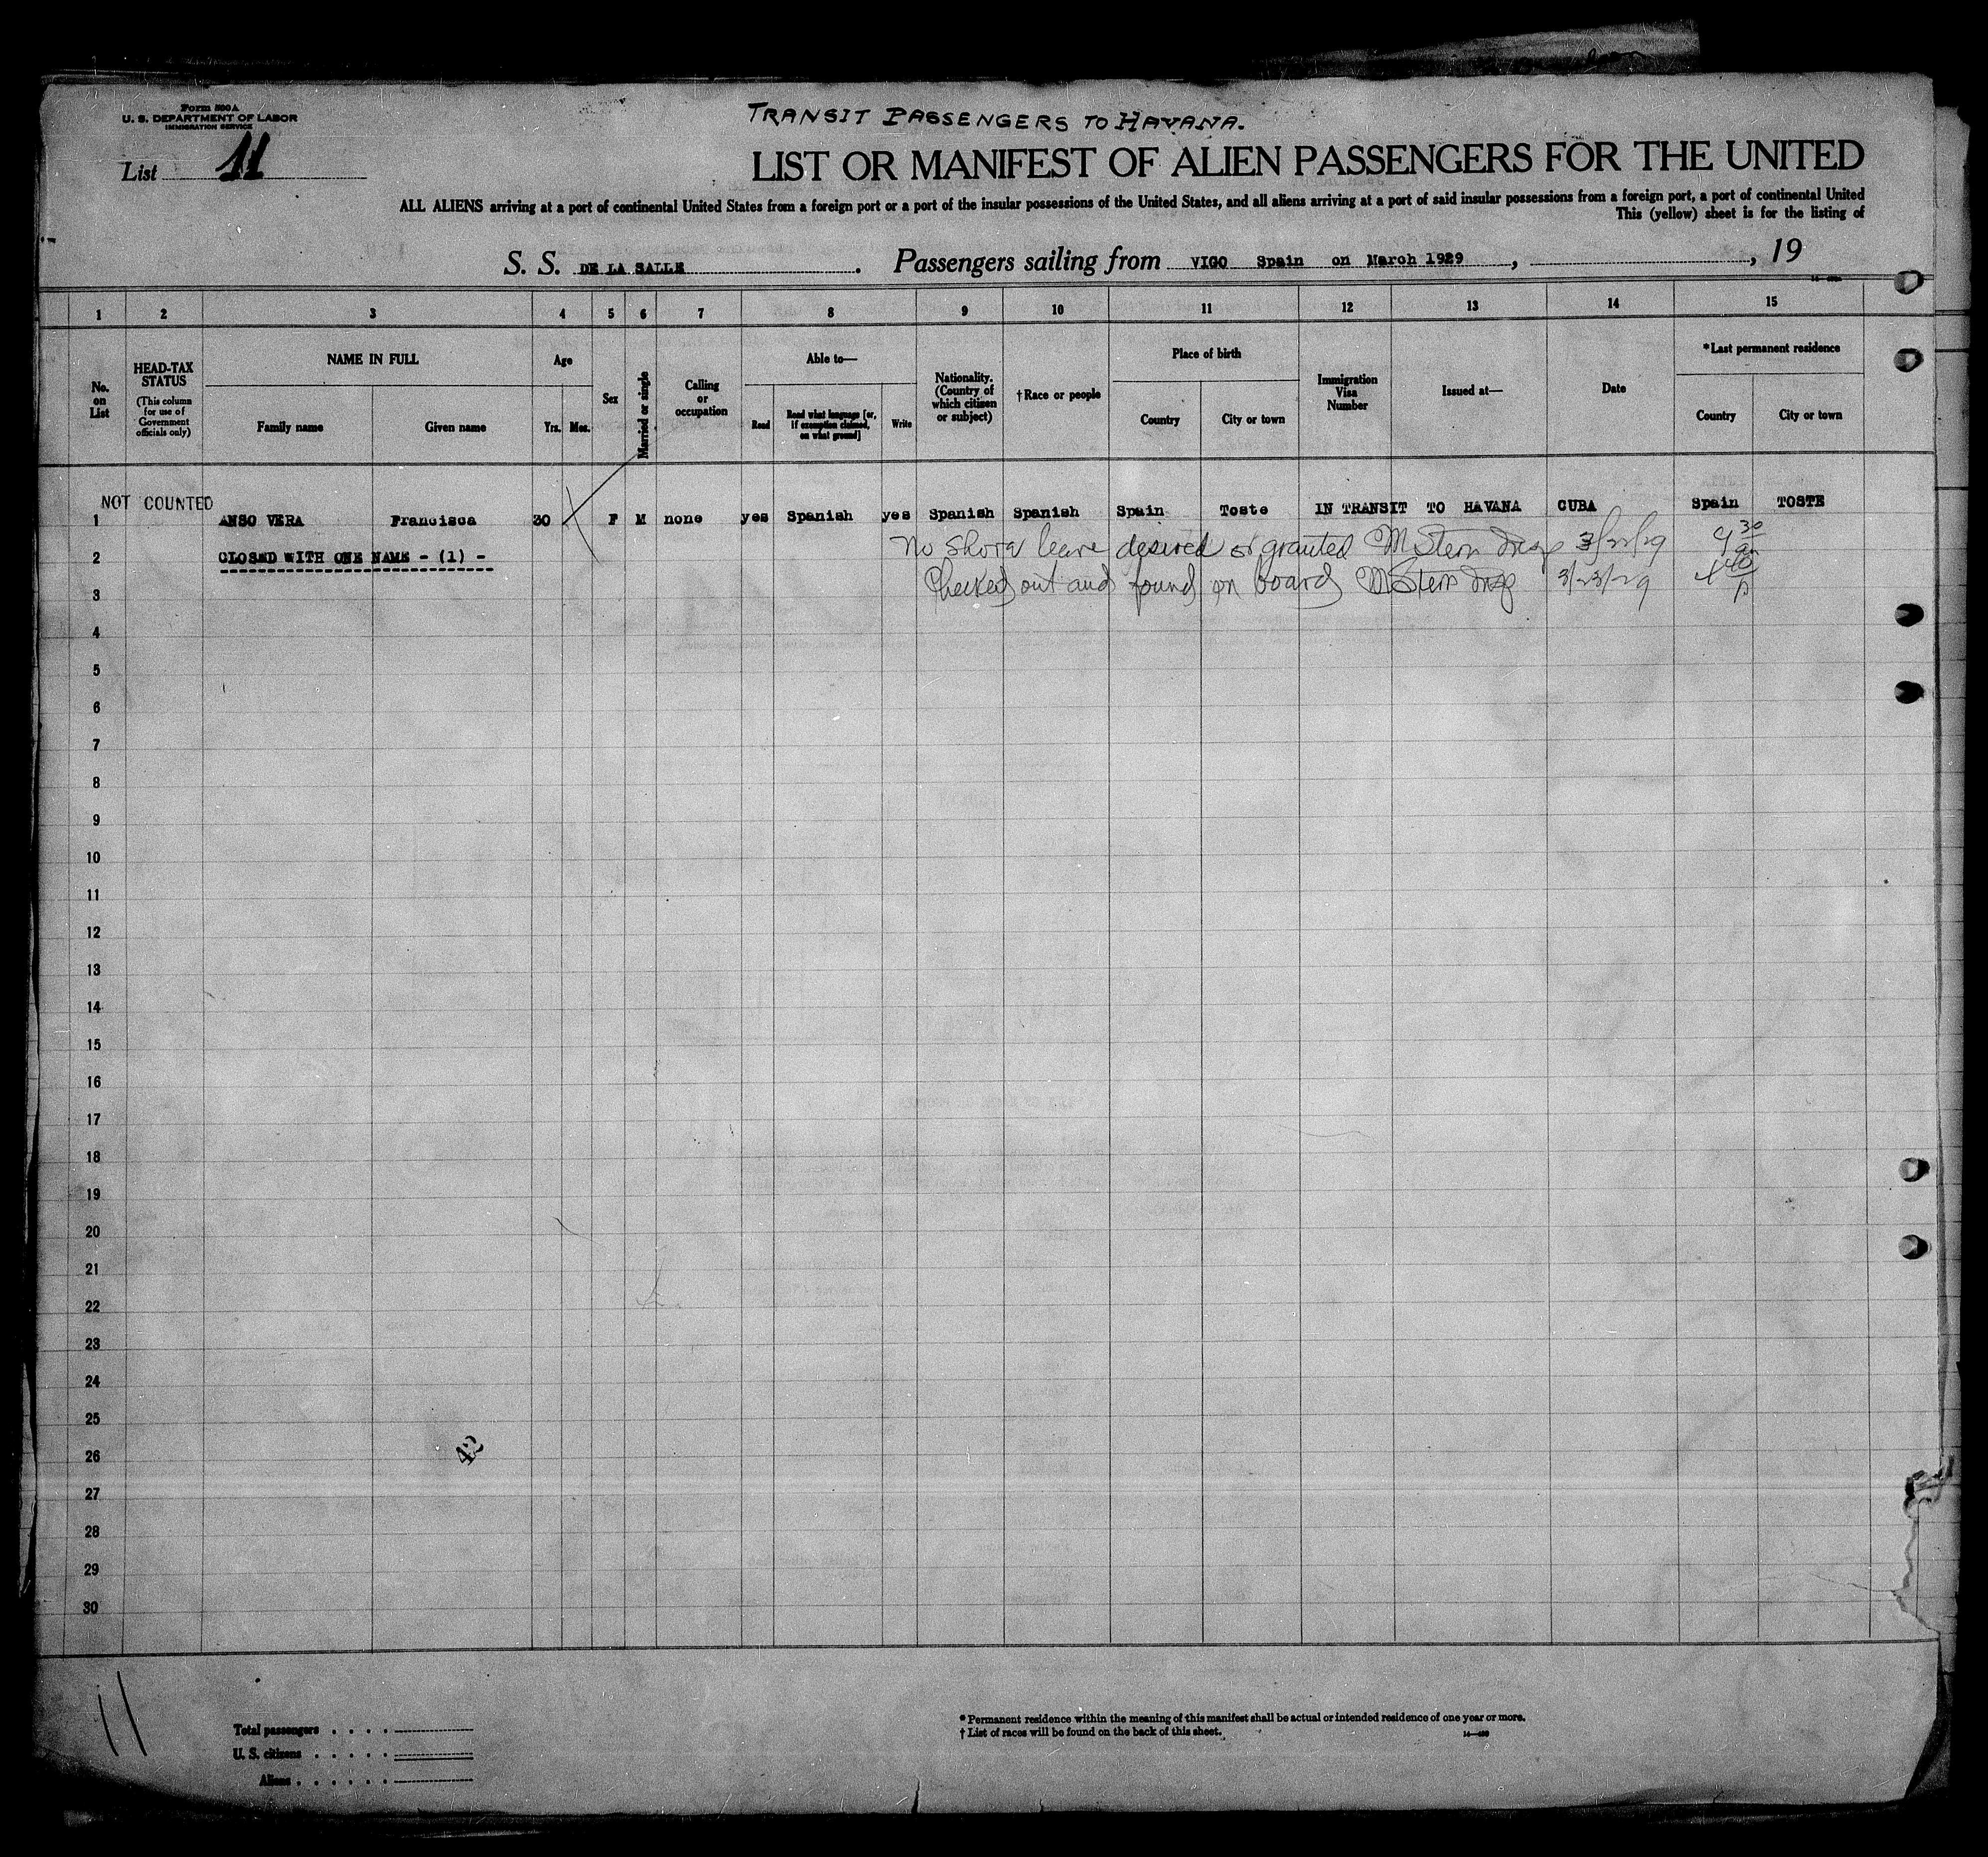 Form 500 A
U. S. DEPARTMENT OF LABOR
IMMIGRATION SERVICE
List 11
TRANSIT PASSENGERS TO HAVANA.
LIST OR MANIFEST OF ALIEN PASSENGERS FOR THE UNITED
ALL ALIENS arriving at a port of continental United States from a foreign port or a port of the insular possessions of the United States, and all aliens arriving at a port of said insular possessions from a foreign port, a port of continental United
This (yellow) sheet is for the listing of
S. S. DE LA SALLE . Passengers sailing from VIGO Spain on March 1929 , , 19
1 2 3 4 5 6 7 8 9 10 11 12 13 14 15
No. on List
HEAD-TAX STATUS
(This column for use of Government officials only)
NAME IN FULL
Family name Given name
Age
Yrs. Mos.
Sex
Married or single
Calling or occupation
Able to—
Read
Read what language [or, if exemption claimed, on what ground]
Write
Nationality. (Country of which citizen or subject)
†Race or people
Place of birth
Country City or town
Immigration Visa Number
Issued at—
Date
*Last permanent residence
Country City or town
NOT COUNTED
1 ANSO VERA Francisca 30 F M none yes Spanish yes Spanish Spanish Spain Toste IN TRANSIT TO HAVANA CUBA Spain TOSTE
No shore leave desired or granted M Stern Insp 3/22/29 9 30 am
2 CLOSED WITH ONE NAME - (1) -
Checked out and found on board M Stern Insp 3/23/29
3
4
5
6
7
8
9
10
11
12
13
14
15
16
17
18
19
20
21
22
23
24
25
42
26
27
28
29
30
11
Total passengers . . . .
U. S. citizens . . . . .
Aliens . . . . . .
* Permanent residence within the meaning of this manifest shall be actual or intended residence of one year or more.
† List of races will be found on the back of this sheet.